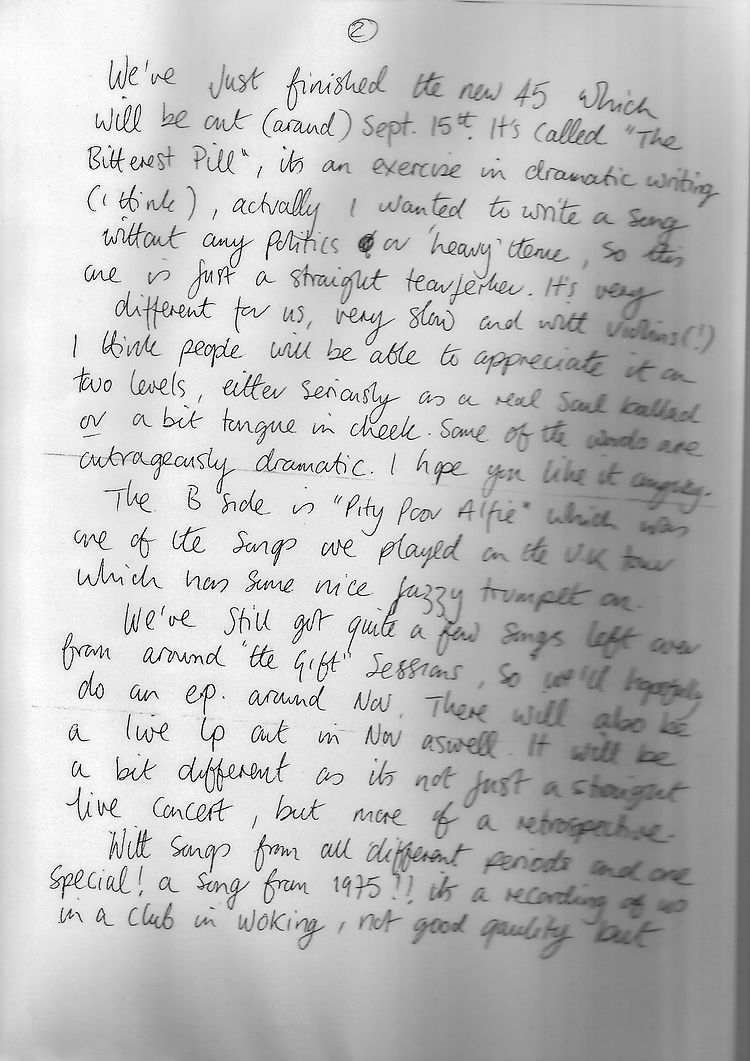 2
We've Just finished the new 45 which
will be out (around) Sept. 15th. It's called "The
Bitterest Pill", its an exercise in dramatic writing
(I think), actually I wanted to write a song
without any politics or 'heavy' theme, so this
one is just a straight tearjerker. It's very
different for us, very slow and with violins(!)
I think people will be able to appreciate it on
two levels, either seriously as a real Soul ballad
or a bit tongue in cheek. Some of the words are
outrageously dramatic. I hope you like it anyway.
The B side is "Pity Poor Alfie" which was
one of the songs we played on the U.K tour
which has some nice jazzy trumpet on.
We've still got quite a few songs left over
from around "the Gift" Sessions, so we'll hopefully
do an e.p. around Nov. There will also be
a live lp out in Nov aswell. It will be
a bit different as its not just a straight
live concert, but more of a retrospective.
With songs from all different periods and one
special! a song from 1975!! its a recording of us
in a club in Woking, not good qaulity but